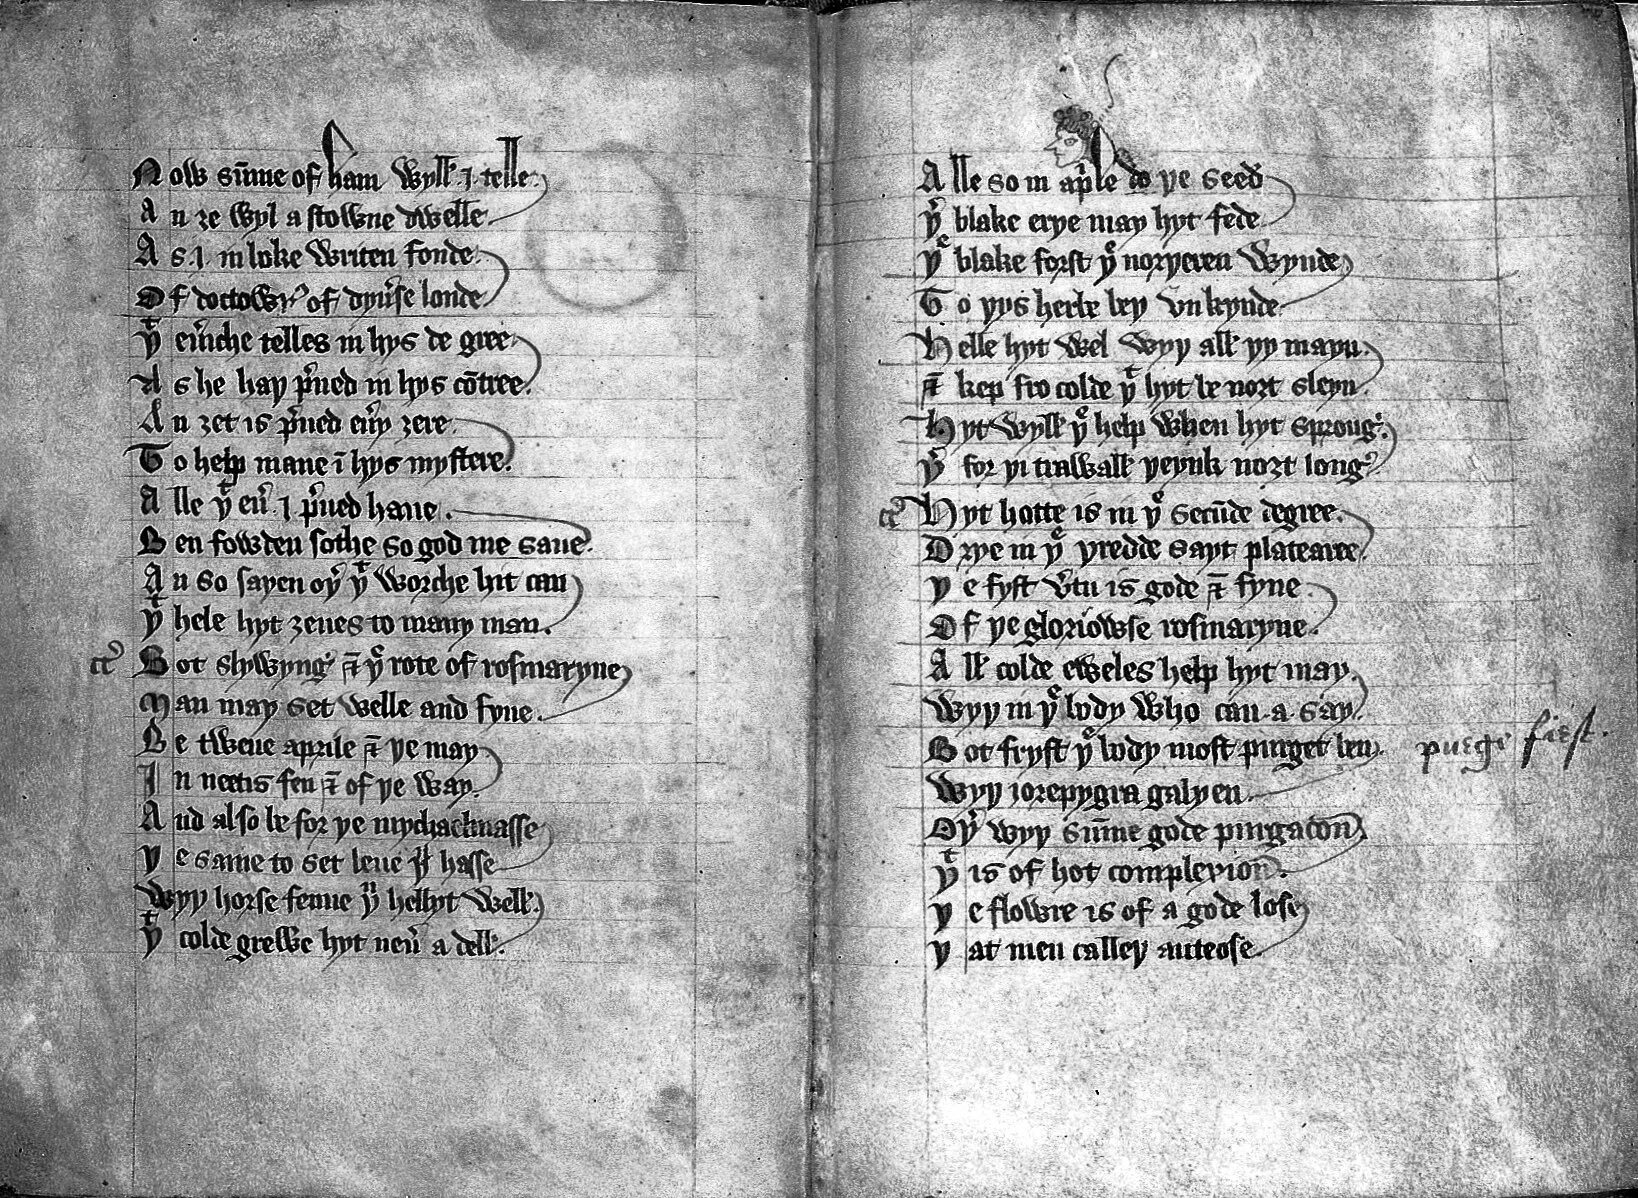 Now sūme of ham wyll I telle
An ze wyl a stowne dwelle
As I in boke writen fonde
Of doctowrs of dyuˢse londe
yᵗ eurˢiche telles in hys de gree
As he hay pˢued in hys cōtree
An zet is pˢued euˢy zere
To help mane ī hys mystere
Alle yᵗ euˢ I pˢued haue
Ben fowden sothe so god me saue
An so sayen oyˢ yᵗ worche hit can
yᵗ hele hyt zeues to many man
Bot slywyngˢ & yᵉ rote of rosmaryne
Man may set welle and fyne
Be twene aprile & ye may
In neetis fen & of ye way
And also be for ye mychaelmasse
ye same to set leue yᵘ hasse
Wyy horse fenne yᵘ hellyt well
yᵗ colde grewe hyt neuˢ a dell
Alle so in apˢle do ye seed
yᵉ blake erye may hyt fede
yᵉ blake forst yᵉ noryeren wynde
To yys herbe bey vnkynde
Helle hyt wel wyy all yy mayn
& kep fro colde yᵗ hyt be nozt sleyn
Hyt wyll yᵉ help when hyt sprongˢ
yˢ for yi trawall yeynk nozt longˢ
Hyt hotte is in yᵉ secūde degree
Drye in yᵉ yredde sayt platearee
ye fyst vˢtu is gode & fyne
Of ye gloriowse rosmaryne
All colde eweles help hyt may
Wyy in yᵉ body who can a say
Bot fryst yᵉ body most purget ben
purge first.
Wyy jorepygra galyen
Oyˢ wyy sūme gode purgacōn
yᵗ is of hot complexion
ye flowre is of a gode lose
yat men calley anteose